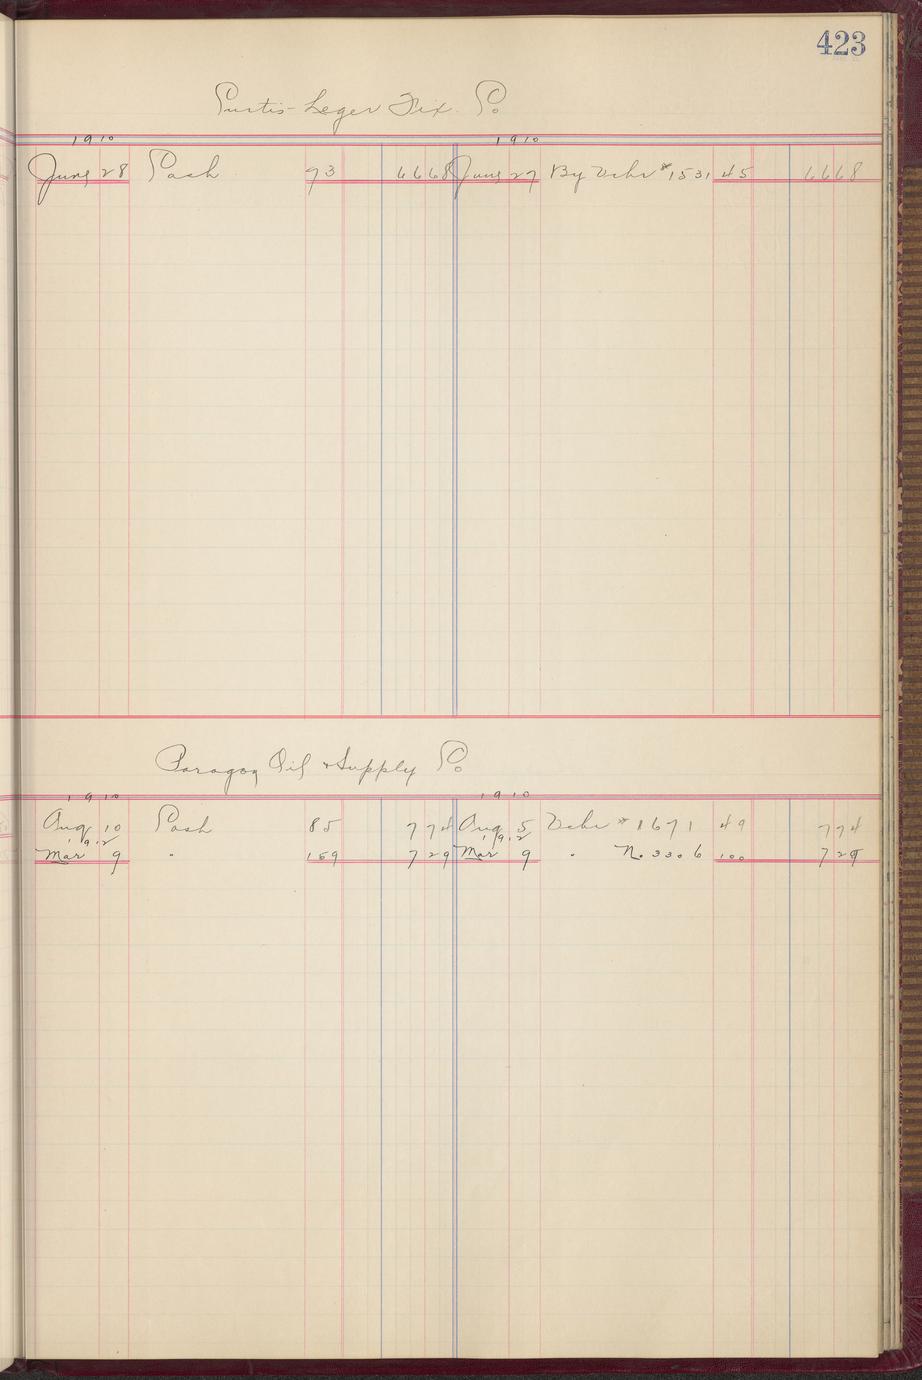 423
Curtis-Leger Fix. Co
1910 1910
June 28 Cash 93 6668 June 27 By Vchr #1531 45 6668
Paragon Oil & Supply Co
1910 1910
Aug 10 Cash 85 774 Aug 5 Vchr #1671 49 774
1912 1912
Mar 9 " 159 729 Mar 9 " No. 3306 100 729